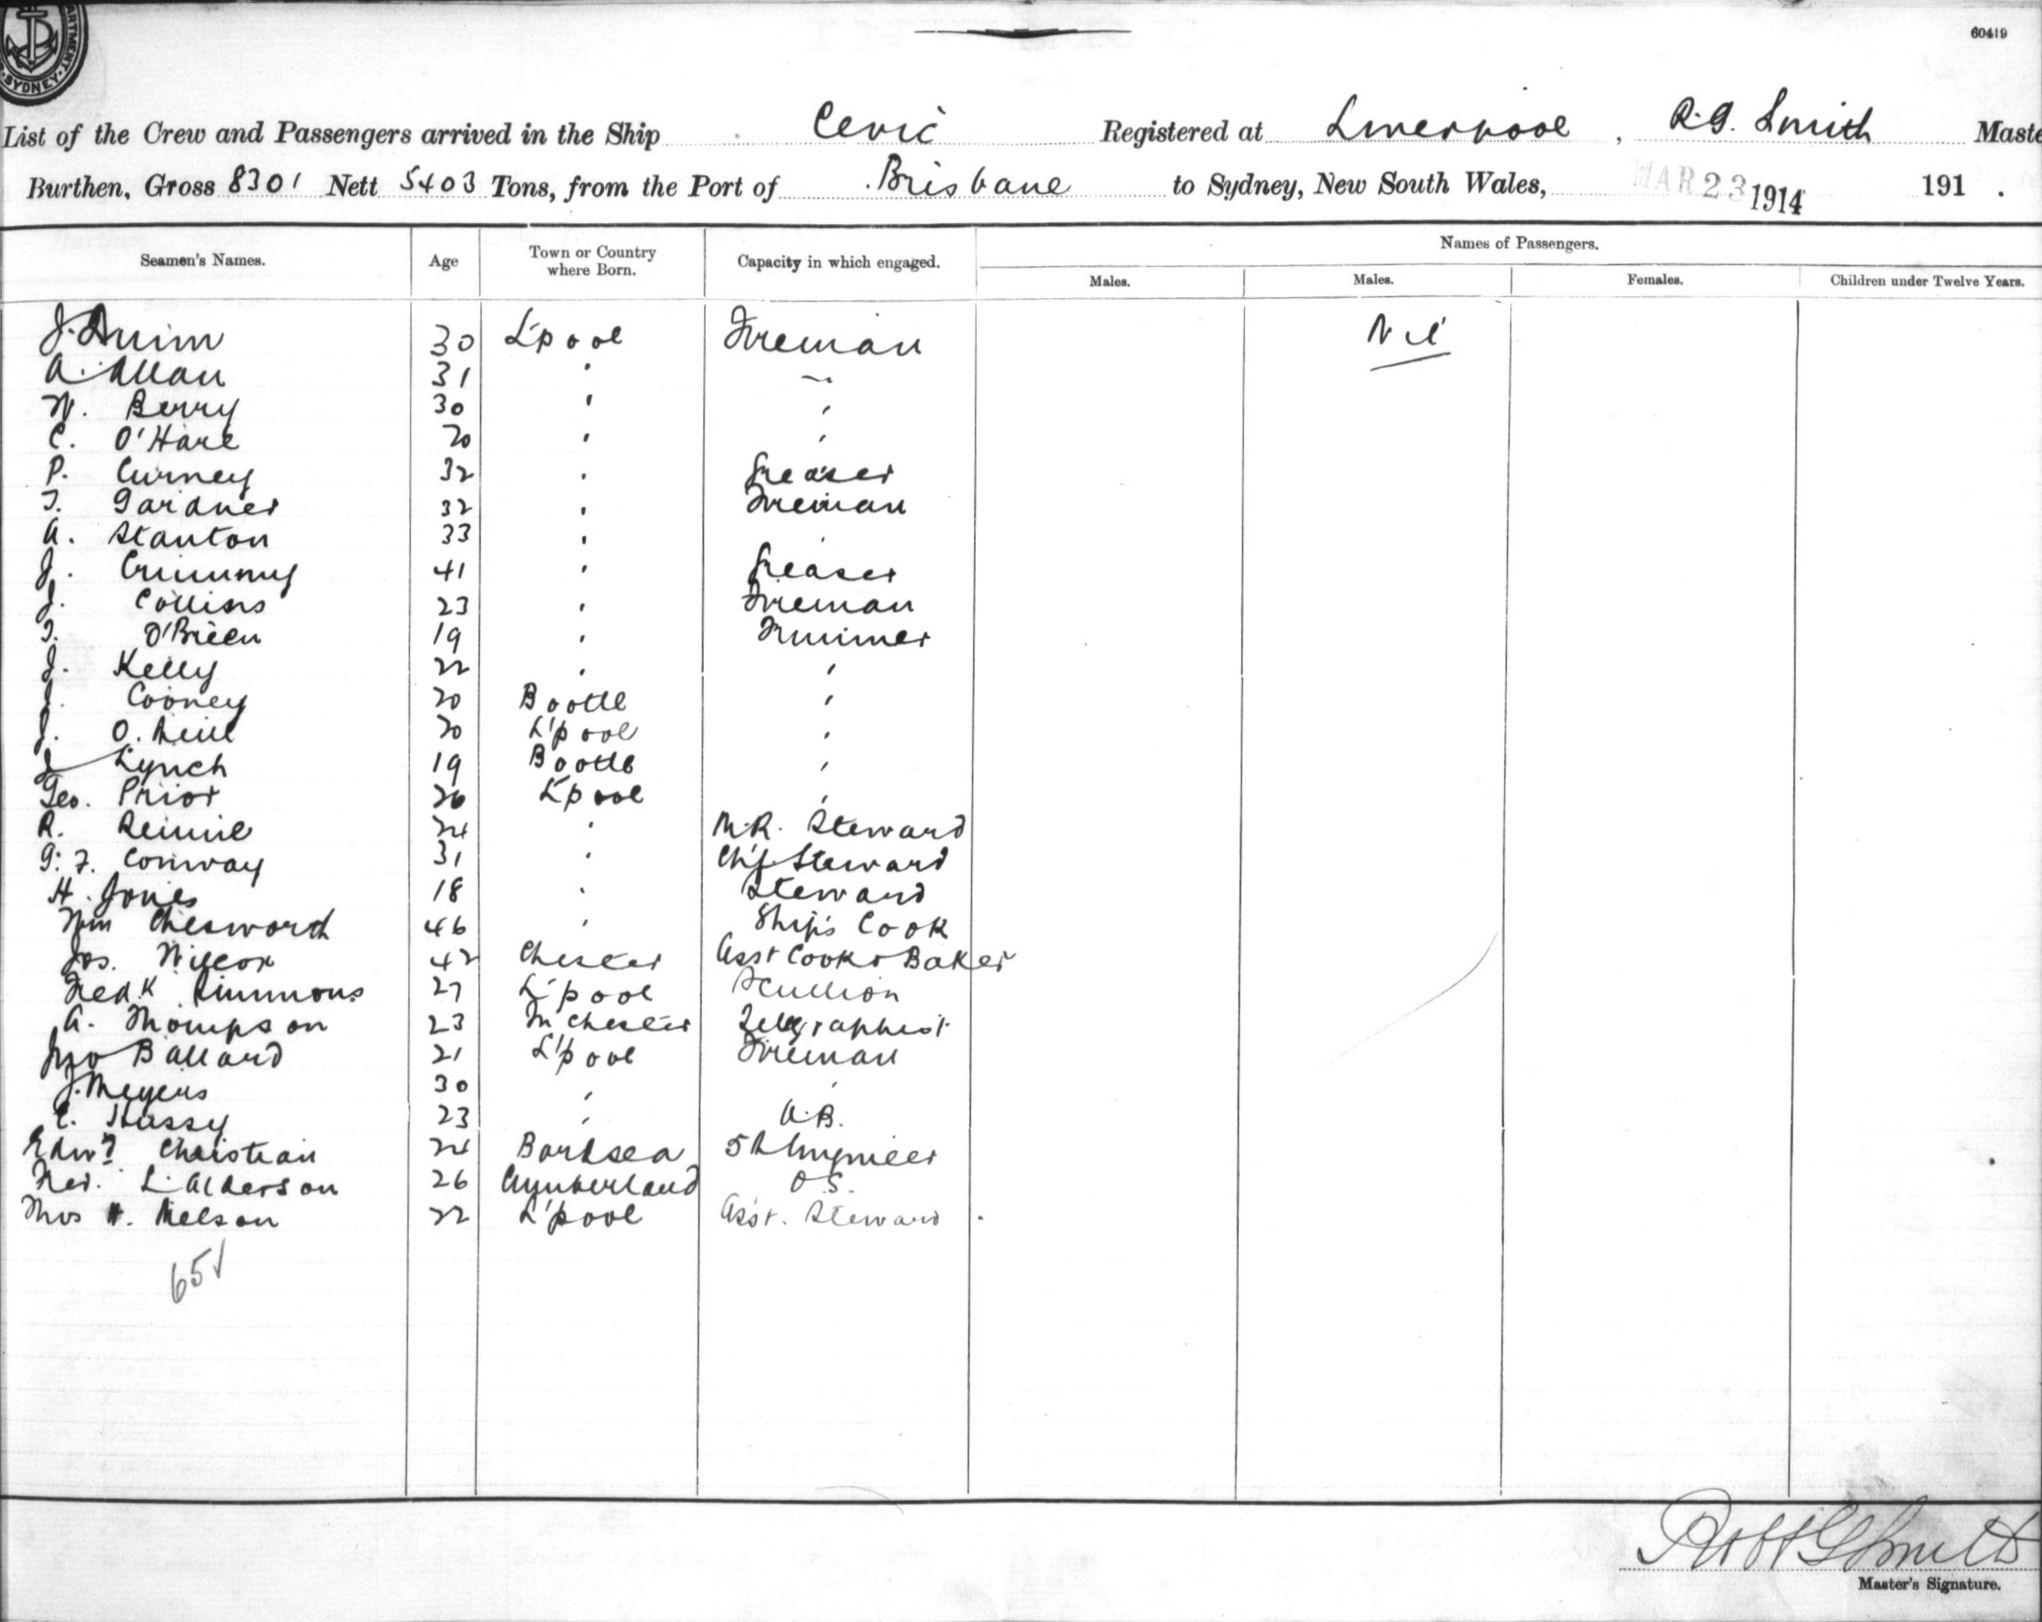 ARTMENT. SYDNEY.
60419
List of the Crew and Passengers arrived in the Ship Cevic Registered at Liverpool, R.G. Smith Maste
Burthen, Gross 8301 Nett 5403 Tons, from the Port of Brisbane to Sydney, New South Wales, MAR 23 1914 191 .
Seamen's Names. Age Town or Country where Born. Capacity in which engaged. Names of Passengers.
Males. Males. Females. Children under Twelve Years.
J. Quinn 30 L'pool Fireman Nil
A. Allan 31 " "
W. Berry 30 " "
C. O'Hare 20 " "
P. Curney 32 " Greaser
T. Gardner 32 " Fireman
A. Stanton 33 " "
J. Crimmy 41 " Greaser
J. Collins 23 " Fireman
T. O'Brien 19 " Trimmer
J. Kelly 22 " "
J. Cooney 20 Bootle "
J. O. Neill 20 L'pool "
J Lynch 19 Bootle "
Geo. Prior 26 L'pool "
R. Rennie 24 " M.R. Steward
G. F. Conway 31 " Ch'f Steward
H. Jones 18 " Steward
Wm Chesworth 46 " Ship's Cook
Jos. Wilcox 42 Chester Asst Cook & Baker
Fredk Simmons 27 L'pool Scullion
A. Thompson 23 M'chester Telegraphist
Jno Ballard 21 L'pool Fireman
J. Meyers 30 " "
E. Hussy 23 " A.B.
Edwd Christian 24 Bardsea 5th Engineer
Fred. L. Alderson 26 Cumberland O.S.
Thos H. Nelson 22 L'pool Asst. Steward
65
Robt G Smith
Master's Signature.